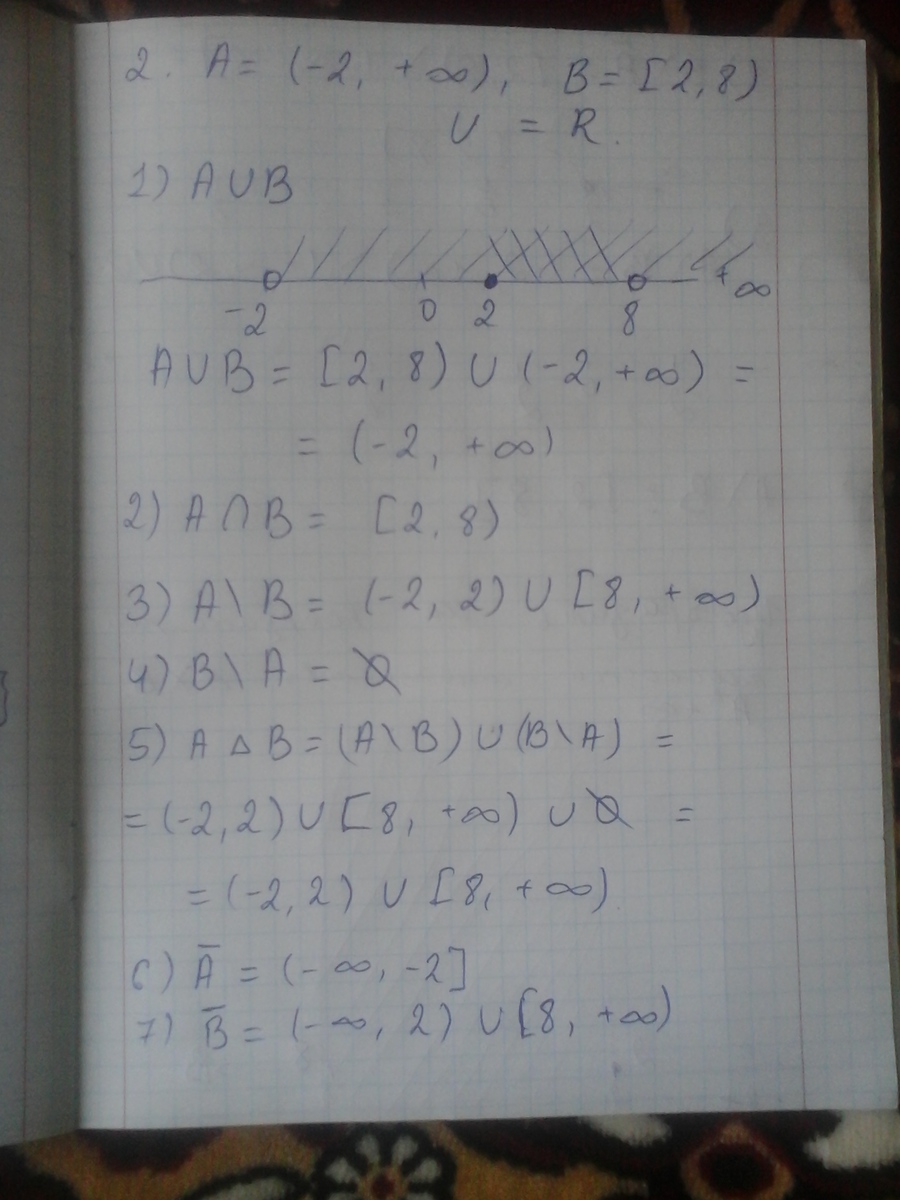 2. A = (-2, +∞), B = [2, 8)
U = R.
1) A∪B
-2 0 2 8 +∞
A∪B = [2, 8) ∪ (-2, +∞) =
= (-2, +∞)
2) A∩B = [2, 8)
3) A\B = (-2, 2) ∪ [8, +∞)
4) B\A = ∅
5) A △ B = (A\B) ∪ (B\A) =
= (-2, 2) ∪ [8, +∞) ∪ ∅ =
= (-2, 2) ∪ [8, +∞)
6) A̅ = (-∞, -2]
7) B̅ = (-∞, 2) ∪ [8, +∞)